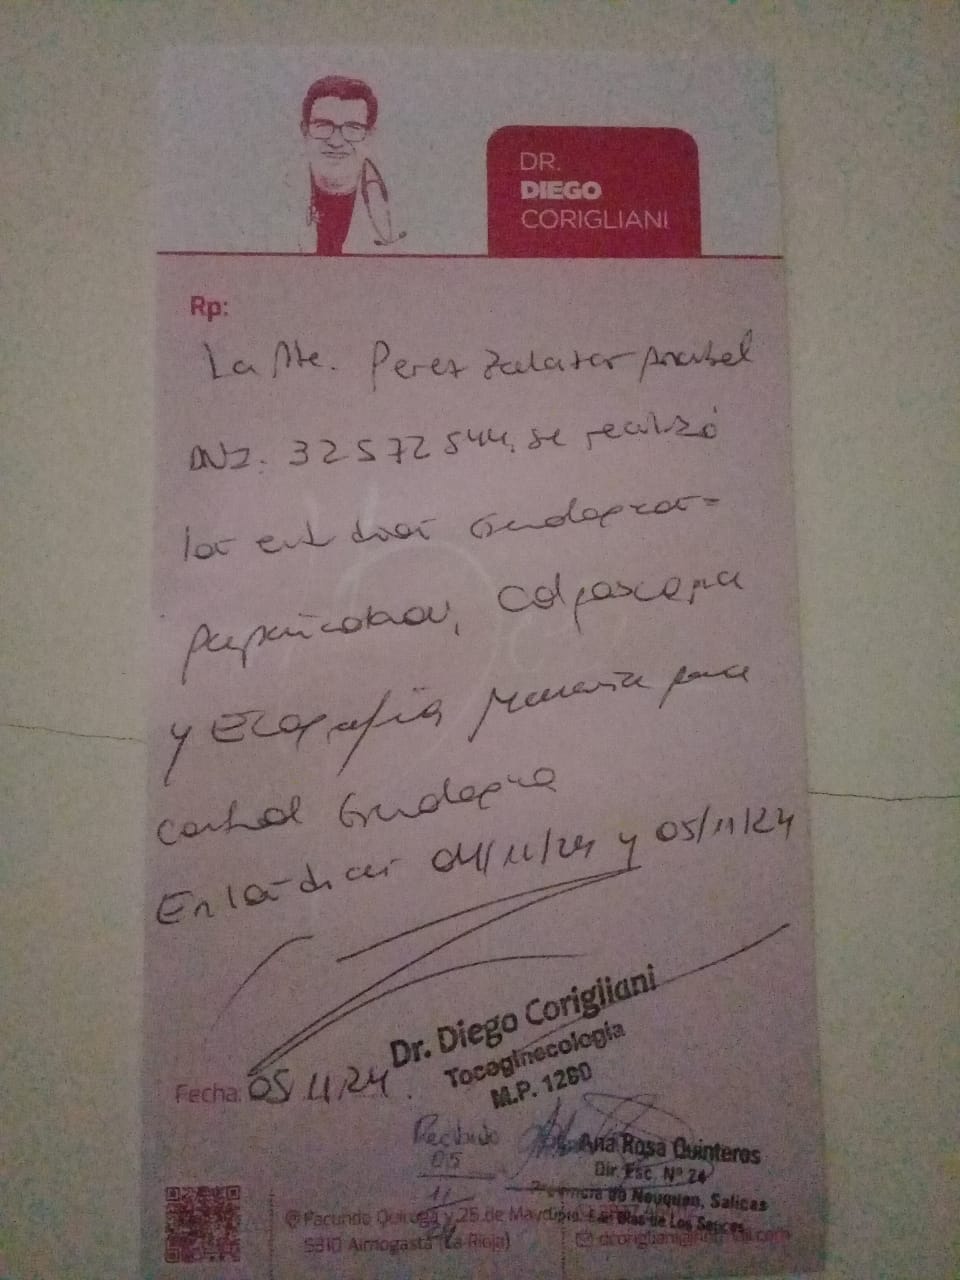 DR.
DIEGO
CORIGLIANI
Rp:
La Pte. Perez Zalazar Anabel
DNI. 32572544, se realizó
los estudios Ginecológicos
Papanicolaou, Colposcopia
y Ecografía Mamaria para
control Ginecológico
En los días 04/11/24 y 05/11/24
Dr. Diego Corigliani
Tocoginecología
M.P. 1260
Fecha: 05/11/24.
Recibido
05
11
Ana Rosa Quinteros
Dir. Esc. Nº 24
Provincia de Neuquen, Salicas
Dpto. San Blas de Los Sauces
Facundo Quiroga y 25 de Mayo
5310 Aimogasta (La Rioja)